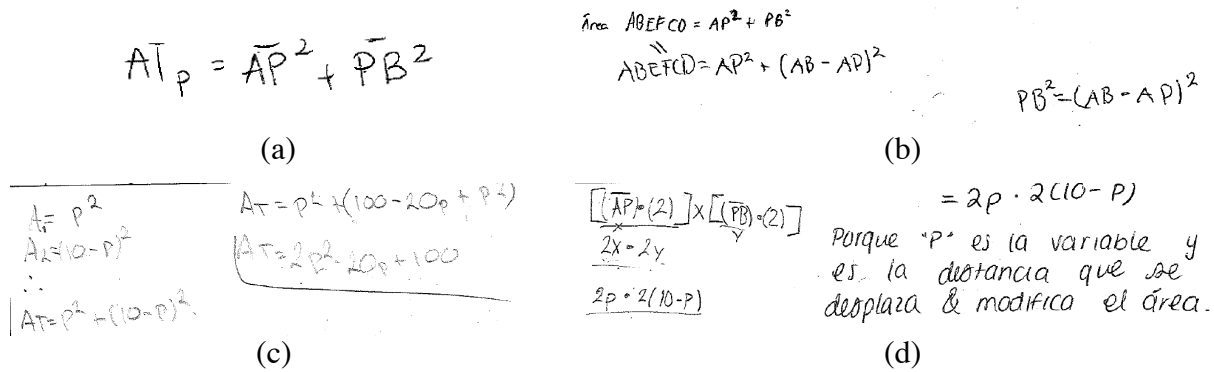 AT̄ₚ = A̅P̅² + P̅B̅²
(a)
Área ABEFCD = AP² + PB²
ABEFCD = AP² + (AB - AP)²
PB² = (AB - AP)²
(b)
A₁= p²
A₂=(10-p)²
∴
AT=p²+(10-p)².
AT=p²+(100-20p+p²)
AT=2p²-20p+100
(c)
[(A̅P̅)•(2)]x[(P̅B̅)•(2)]
x y
2x • 2y
2p • 2(10-p)
= 2p · 2(10-P)
Porque "P" es la variable y
es la distancia que se
desplaza & modifica el área.
(d)